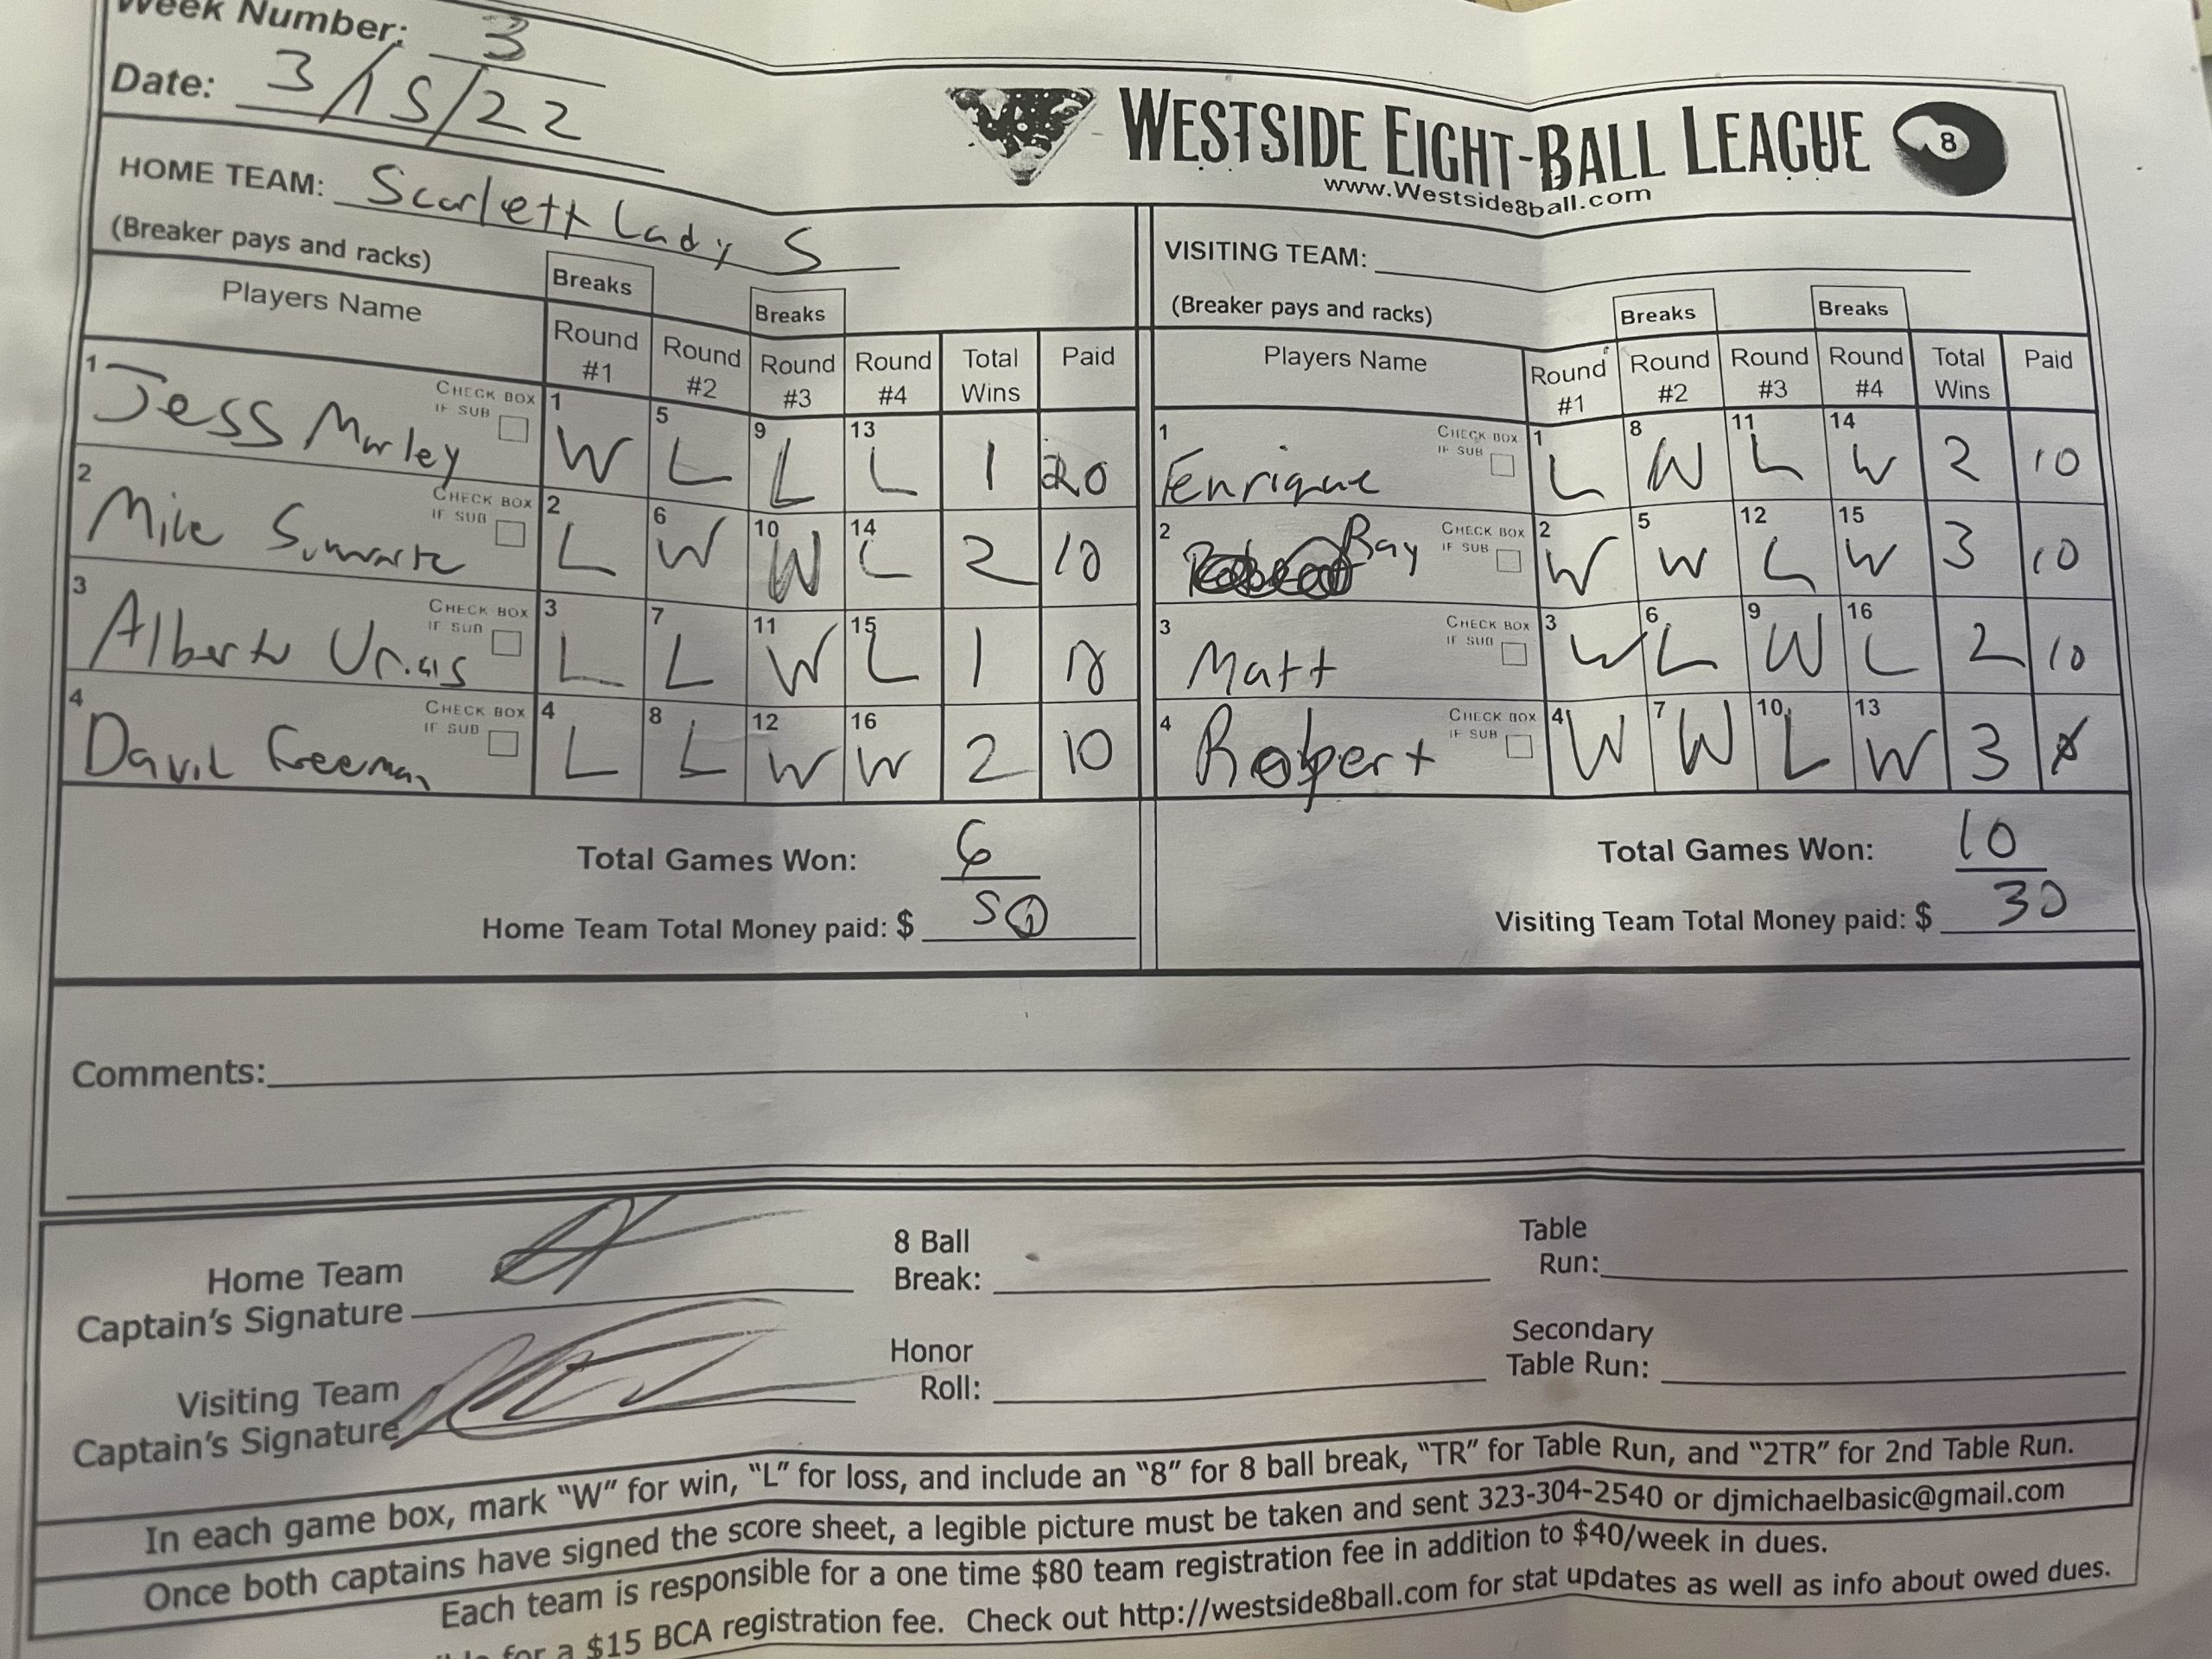 Week Number: 3
Date: 3/15/22
WESTSIDE EIGHT-BALL LEAGUE 8
www.Westside8ball.com
HOME TEAM: Scarlett Lady S
(Breaker pays and racks)
Players Name
Breaks
Breaks
Round #1 Round #2 Round #3 Round #4 Total Wins Paid
1 Jess Morley CHECK BOX IF SUB 1 W 5 L 9 L 13 L 1 20
2 Mike CHECK BOX IF SUB 2 L 6 W 10 W 14 L 2 10
3 Alberto CHECK BOX IF SUB 3 L 7 L 11 W 15 L 1
4 David Freeman CHECK BOX IF SUB 4 L 8 L 12 W 16 W 2 10
Total Games Won: 6
Home Team Total Money paid: $ 50
VISITING TEAM:
(Breaker pays and racks)
Breaks
Breaks
Players Name
Round #1 Round #2 Round #3 Round #4 Total Wins Paid
1 Enrique CHECK BOX IF SUB 1 L 8 W 11 L 14 W 2 10
2 Ray CHECK BOX IF SUB 2 W 5 W 12 L 15 W 3 10
3 Matt CHECK BOX IF SUB 3 W 6 L 9 W 16 L 2 10
4 Robert CHECK BOX IF SUB 4 W 7 W 10 L 13 W 3
Total Games Won: 10
Visiting Team Total Money paid: $ 30
Comments:
Home Team
Captain's Signature
8 Ball
Break:
Table
Run:
Visiting Team
Captain's Signature
Honor
Roll:
Secondary
Table Run:
In each game box, mark “W” for win, “L” for loss, and include an “8” for 8 ball break, “TR” for Table Run, and “2TR” for 2nd Table Run.
Once both captains have signed the score sheet, a legible picture must be taken and sent 323-304-2540 or djmichaelbasic@gmail.com
Each team is responsible for a one time $80 team registration fee in addition to $40/week in dues.
for a $15 BCA registration fee. Check out http://westside8ball.com for stat updates as well as info about owed dues.